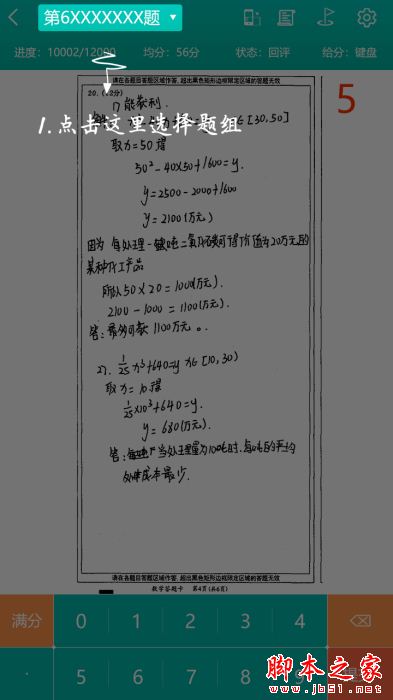 第6XXXXXXX题
进度：10002/12000 均分：56分 状态：回评 给分：键盘
请在各题目答题区域作答，超出黑色矩形边框限定区域的答题无效
20. (12分)
1) 能获利.
∈[30,50]
1.点击这里选择题组
取x=50得
50²-40×50+1600=y.
y=2500-2000+1600
y=2100(万元)
因为每处理一吨二氧化碳可得价值为20万元的
某种化工产品
所以50×20=1000(万元).
2100-1000=1100(万元).
答:最多可获1100万元。
2). 1/25 x³+640=y x∈[10,30)
取x=10得
1/25×10³+640=y.
y=680(万元).
答: 当处理量为10吨时.每吨的平均
处理成本最少.
请在各题目答题区域作答，超出黑色矩形边框限定区域的答题无效
数学答题卡 第4页(共6页)
5
满分 0 1 2 3 4
5 6 7 8 9
脚本之家
www.jb51.net